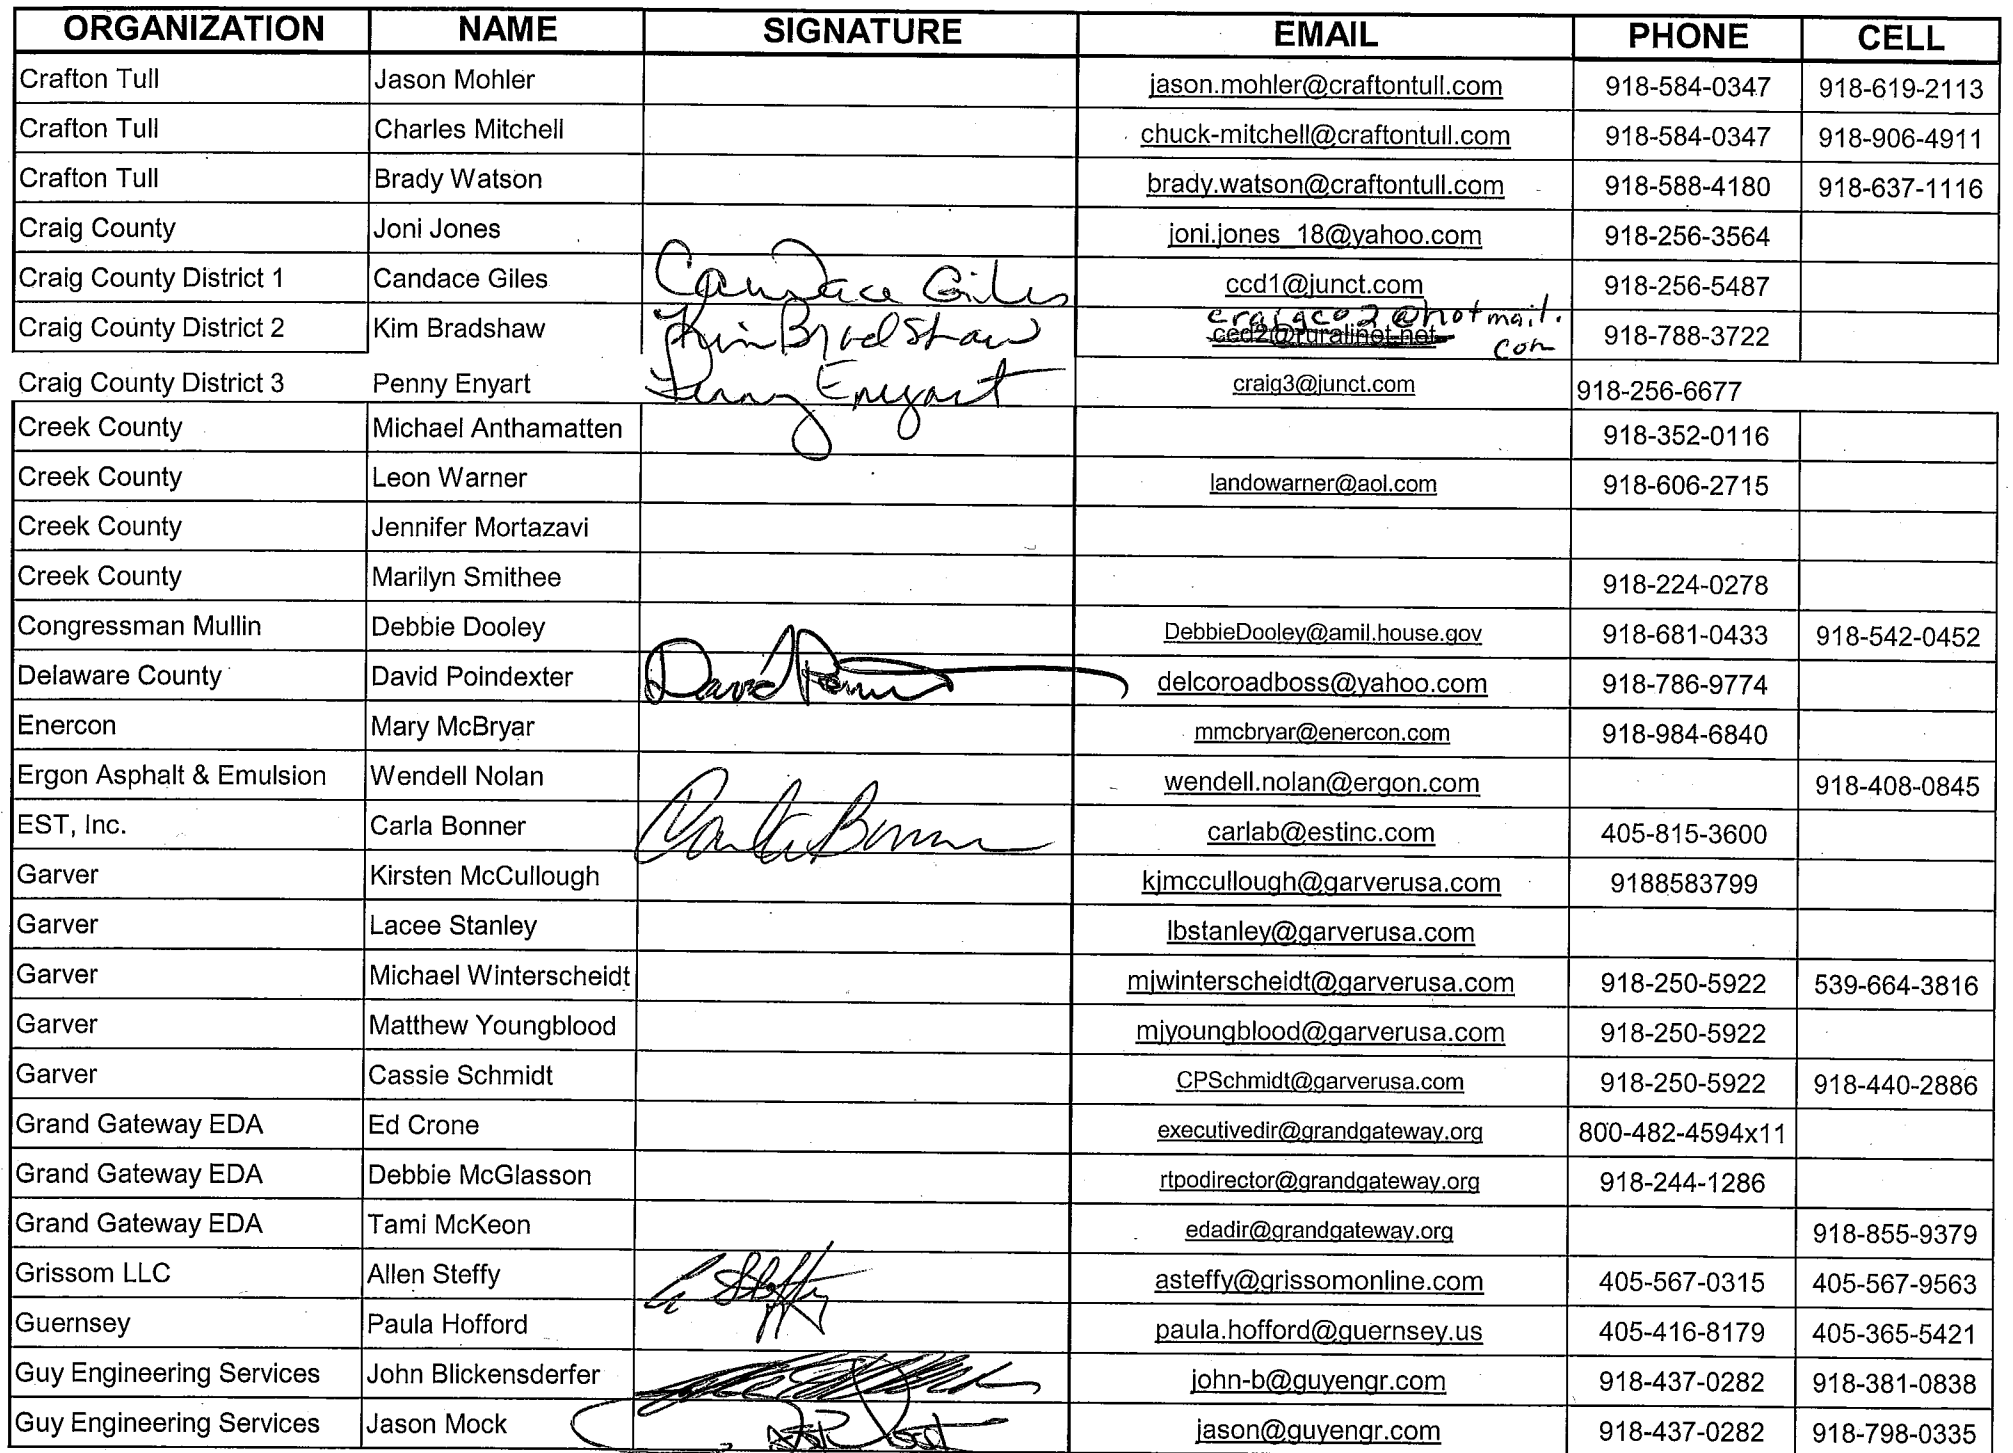 ORGANIZATION NAME SIGNATURE EMAIL PHONE CELL
Crafton Tull Jason Mohler jason.mohler@craftontull.com 918-584-0347 918-619-2113
Crafton Tull Charles Mitchell chuck-mitchell@craftontull.com 918-584-0347 918-906-4911
Crafton Tull Brady Watson brady.watson@craftontull.com 918-588-4180 918-637-1116
Craig County Joni Jones joni.jones_18@yahoo.com 918-256-3564
Craig County District 1 Candace Giles Candace Giles ccd1@junct.com 918-256-5487
Craig County District 2 Kim Bradshaw Kim Bradshaw craigco2@hotmail.com ced2@ruralinet.net 918-788-3722
Craig County District 3 Penny Enyart Penny Enyart craig3@junct.com 918-256-6677
Creek County Michael Anthamatten 918-352-0116
Creek County Leon Warner landowarner@aol.com 918-606-2715
Creek County Jennifer Mortazavi
Creek County Marilyn Smithee 918-224-0278
Congressman Mullin Debbie Dooley DebbieDooley@amil.house.gov 918-681-0433 918-542-0452
Delaware County David Poindexter David delcoroadboss@yahoo.com 918-786-9774
Enercon Mary McBryar mmcbryar@enercon.com 918-984-6840
Ergon Asphalt & Emulsion Wendell Nolan wendell.nolan@ergon.com 918-408-0845
EST, Inc. Carla Bonner Carla Bonner carlab@estinc.com 405-815-3600
Garver Kirsten McCullough kjmccullough@garverusa.com 9188583799
Garver Lacee Stanley lbstanley@garverusa.com
Garver Michael Winterscheidt mjwinterscheidt@garverusa.com 918-250-5922 539-664-3816
Garver Matthew Youngblood mjyoungblood@garverusa.com 918-250-5922
Garver Cassie Schmidt CPSchmidt@garverusa.com 918-250-5922 918-440-2886
Grand Gateway EDA Ed Crone executivedir@grandgateway.org 800-482-4594x11
Grand Gateway EDA Debbie McGlasson rtpodirector@grandgateway.org 918-244-1286
Grand Gateway EDA Tami McKeon edadir@grandgateway.org 918-855-9379
Grissom LLC Allen Steffy A Steffy asteffy@grissomonline.com 405-567-0315 405-567-9563
Guernsey Paula Hofford paula.hofford@guernsey.us 405-416-8179 405-365-5421
Guy Engineering Services John Blickensderfer john-b@guyengr.com 918-437-0282 918-381-0838
Guy Engineering Services Jason Mock jason@guyengr.com 918-437-0282 918-798-0335